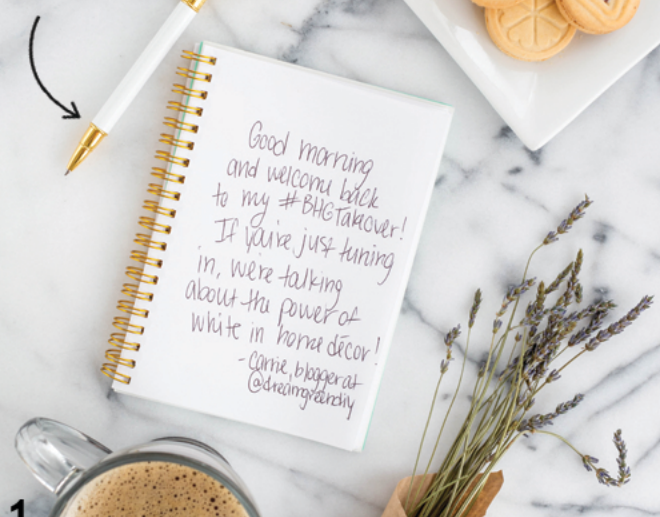 Good morning
and welcome back
to my #BHGTakeover!
If you're just tuning
in, we're talking
about the power of
white in home décor!
-carrie, blogger at
@dreamgreendiy
1